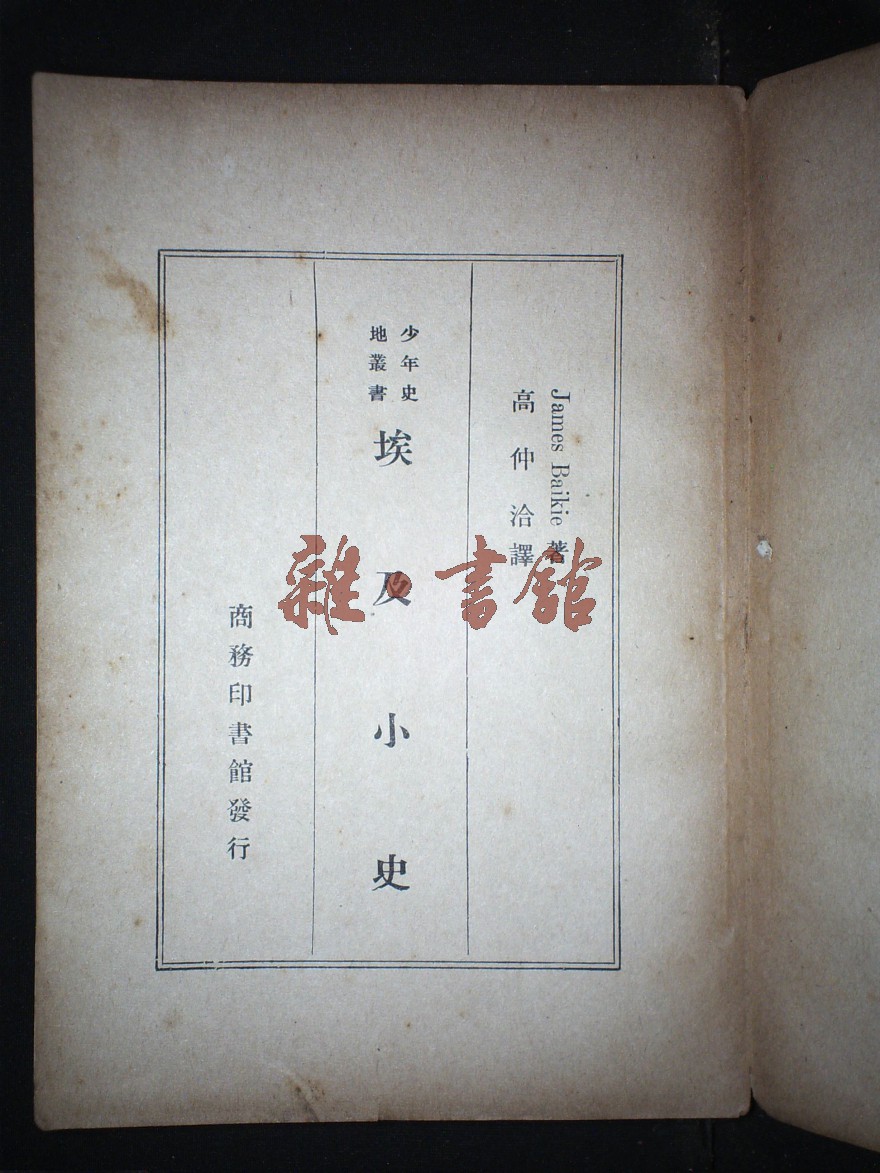 James Baikie 著
高仲洽譯
少年史
地叢書
埃及小史
商務印書館發行
雜書館